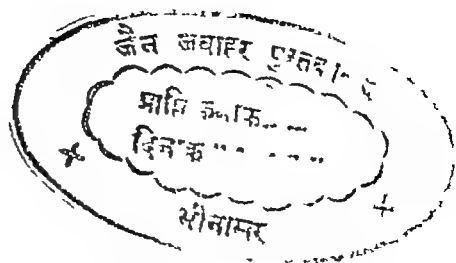 जैन जवाहर पुस्तका
प्राप्ति क्रमांक......
दिनांक.........
भीनासर